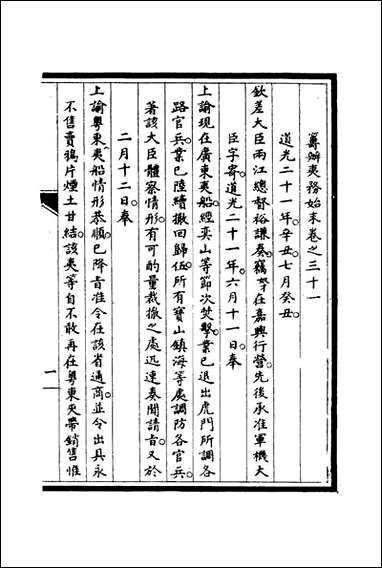 籌辦夷務始末卷之三十一
道光二十一年。辛丑。七月癸丑。
欽差大臣兩江總督裕謙奏。竊奴才在嘉興行營。先後承准軍機大
臣字寄。道光二十一年。六月十一日。奉
上諭現在廣東夷船。經奕山等節次焚擊。業已退出虎門。所調各
路官兵。業已陸續撤回歸伍。所有寶山鎮海等處調防各官兵。
著該大臣體察情形。有可酌量裁撤之處。迅速奏聞請旨。又於
二月十二日。奉
上諭粵東夷船情形恭順。已降旨准令在該省通商。並令出具永
不售賣鴉片煙土甘結。該夷等自不敢再在粵東夾帶銷售。惟
一